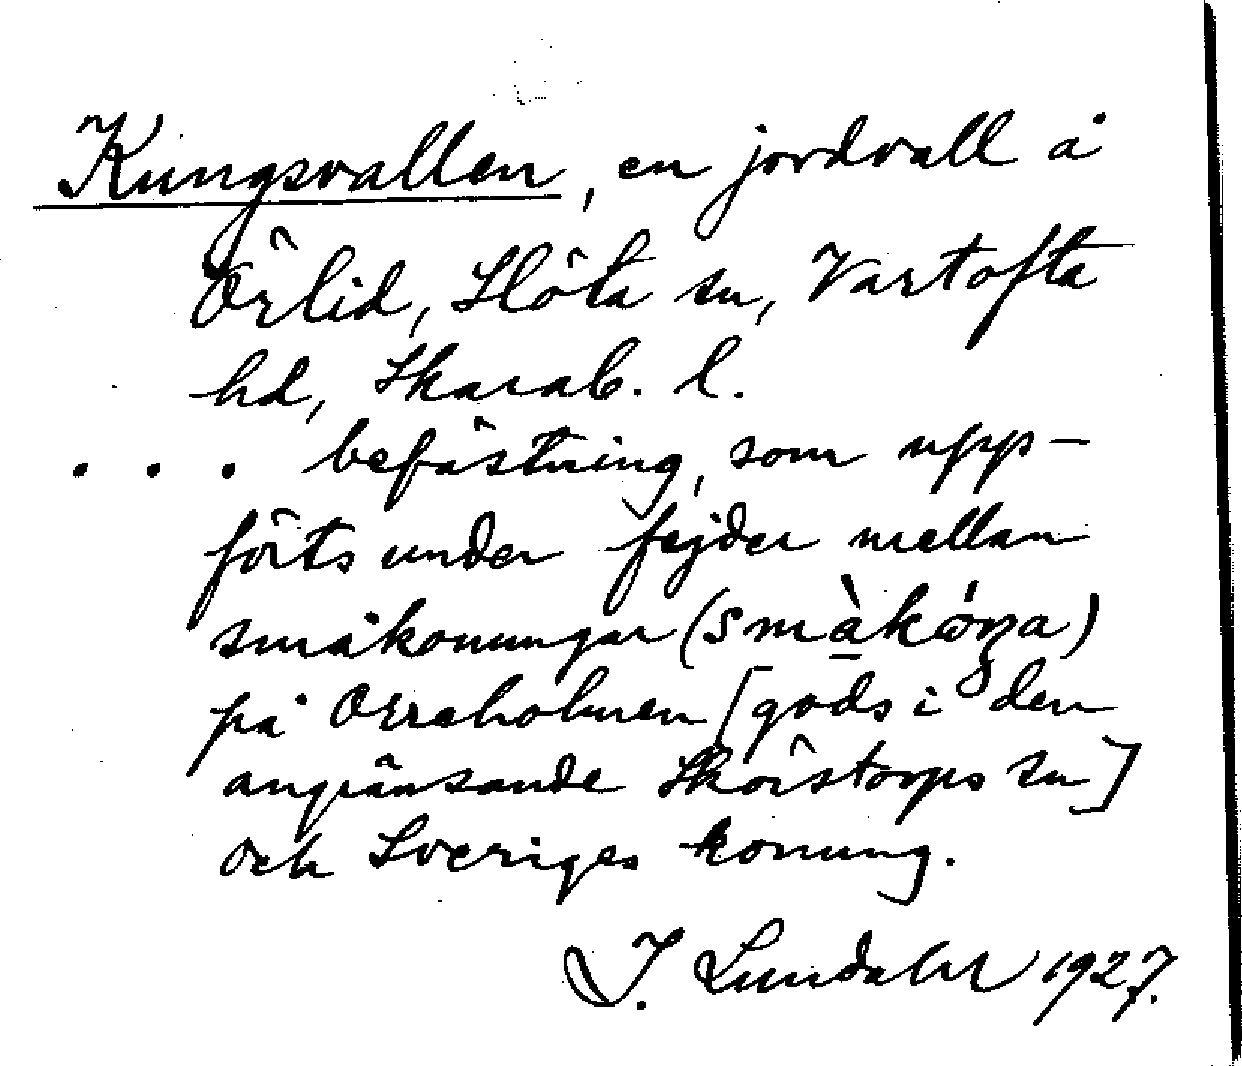 Kungsvallen, en jordvall å
Örlid, Slöta sn, Vartofta
hd, Skarab. l.
. . . befästning, som upp-
förts under fejder mellan
småkonungar (smàkóŋa)
på Orreholmen [gods i den
angränsande Skörstorps sn]
och Sveriges konung.
I. Lundahl 1927.